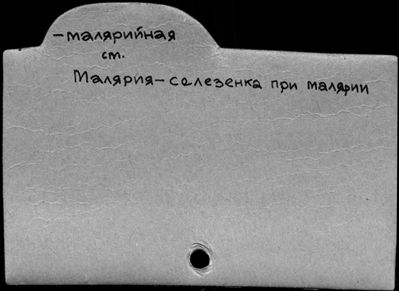 -малярийная
ст.
Малярия-селезенка при малярии